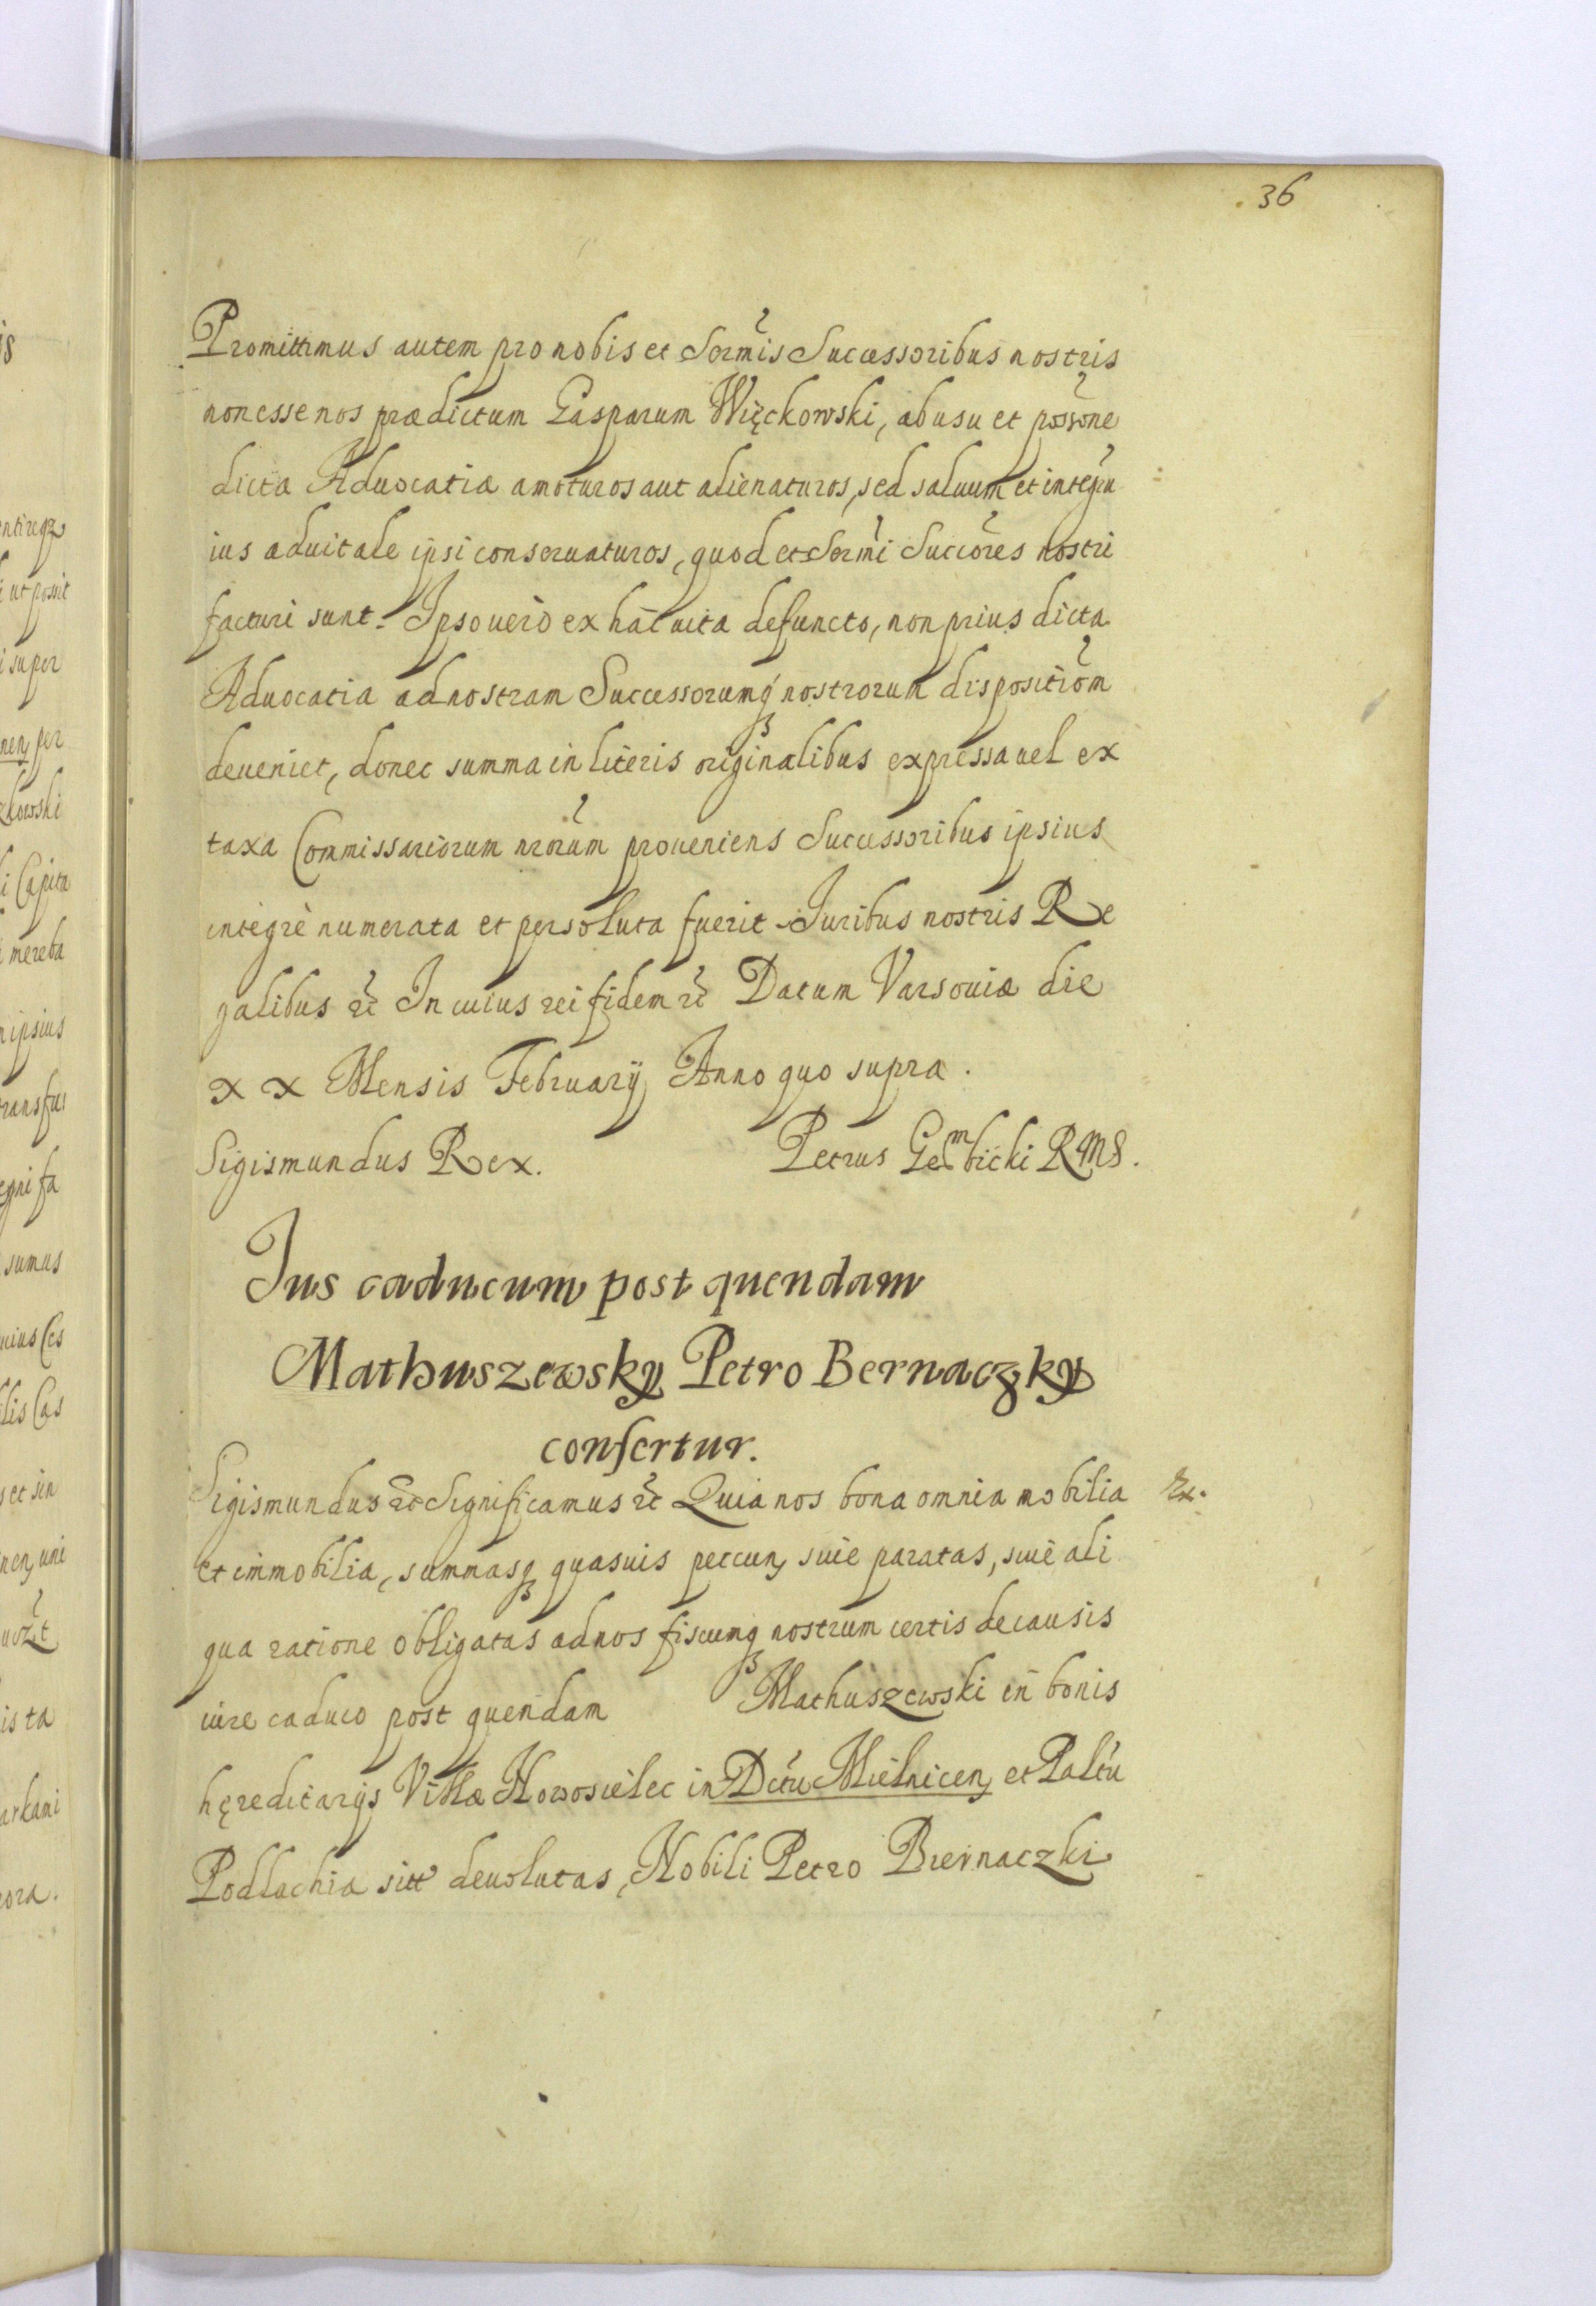 36
Promittimus autem pro nobis et Sermis Successoribus nostris
non esse nos prædictum Gasparum Więckowski, ab usu et possone
dicta Aduocatiæ amoturos aut alienaturos, sed saluum et integru
ius aduitale ipsi conseruaturos, quod et Sermi Succores nostri
facturi sunt. Ipso uero ex hac uita defuncto, non prius dicta
Aduocatia ad nostram Successorumq nostrorum dispositiom
deueniet, donec summa in literis originalibus expressa uel ex
taxa Commissariorum nrorum proueniens Successoribus ipsius
integrè numerata et persoluta fuerit. Iuribus nostris Re
galibus etc In cuius rei fidem etc Datum Varsouiæ die
xx Mensis February Anno quo supra.
Sigismundus Rex. Petrus Gembicki RMS.
Ius caducum post quendam
Mathuszewsky Petro Bernaczky
confertur.
Sigismundus etc Significamus etc Quia nos bona omnia mobilia
et immobilia, summasq quasuis pecun, siue paratas, siue ali
qua ratione obligatas ad nos fiscumq nostrum certis de causis
iure caduco post quendam Mathuszewski in bonis
hęreditarijs Villæ Nowosielec in Dctu Mielnicen, et Paltu
Podlachia sitt deuolutas, Nobili Petro Biernaczki